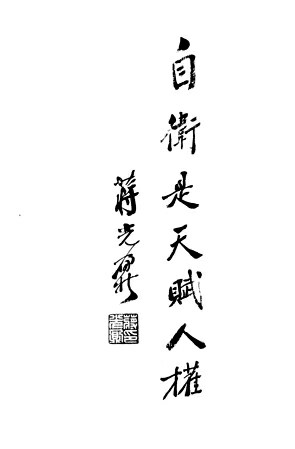 自衛是天賦人權
蔣光鼐